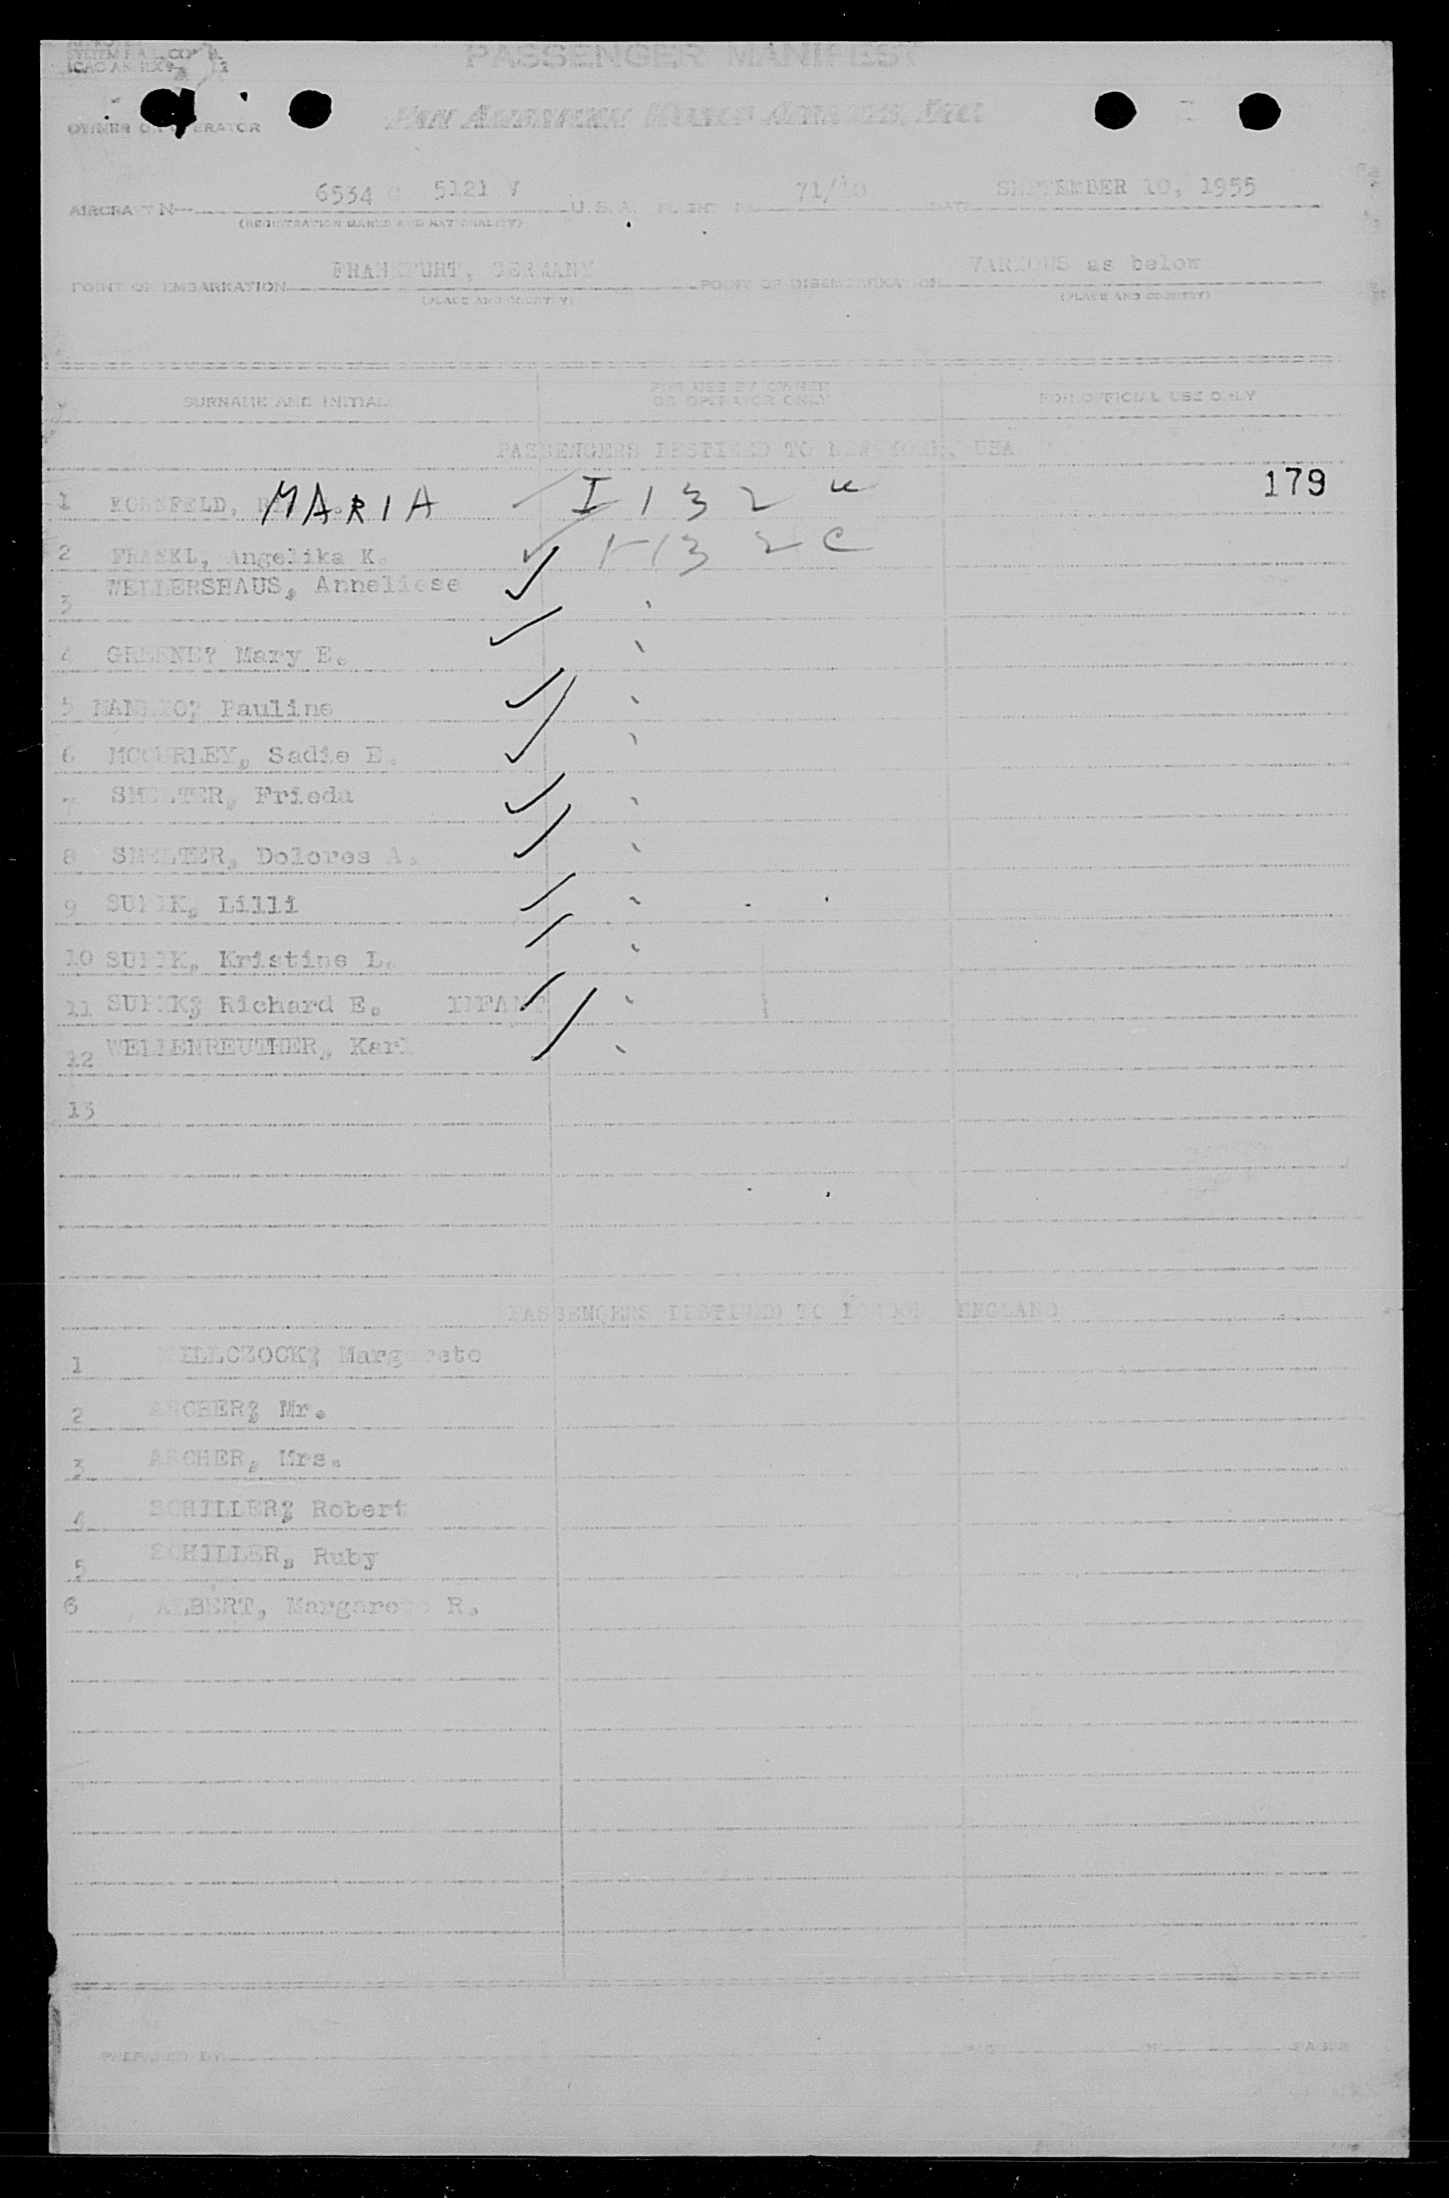 PASSENGER MANIFEST
OWNER OR OPERATOR PAN AMERICAN WORLD AIRWAYS, INC.
AIRCRAFT N 6534 C 5121 V U.S.A. FLIGHT No. 71/10 DATE SEPTEMBER 10, 1955
(REGISTRATION MARKS AND NATIONALITY)
POINT OF EMBARKATION FRANKFURT, GERMANY POINT OF DISEMBARKATION VARIOUS as below
(PLACE AND COUNTRY) (PLACE AND COUNTRY)
SURNAME AND INITIAL FOR USE BY OWNER OR OPERATOR ONLY FOR OFFICIAL USE ONLY
PASSENGERS DESTINED TO NEW YORK, USA
179
1 KORNFELD, MARIA I 132
2 FRANKL, Angelika K. I 132 C
3 WELLERSHAUS, Anneliese
4 GREENE? Mary E.
5 Pauline
6 MCCURLEY, Sadie E.
7 SMELTER, Frieda
8 SMELTER, Dolores A.
9 Lilli
10 Kristine L.
11 Richard E. INFANT
12 WELLENREUTHER, Karl
13
PASSENGERS DESTINED TO LONDON ENGLAND
1 Margarete
2 ARCHER? Mr.
3 ARCHER, Mrs.
4 SCHILLER? Robert
5 SCHILLER, Ruby
6 ALBERT, Margarete R.
PREPARED BY PAGES